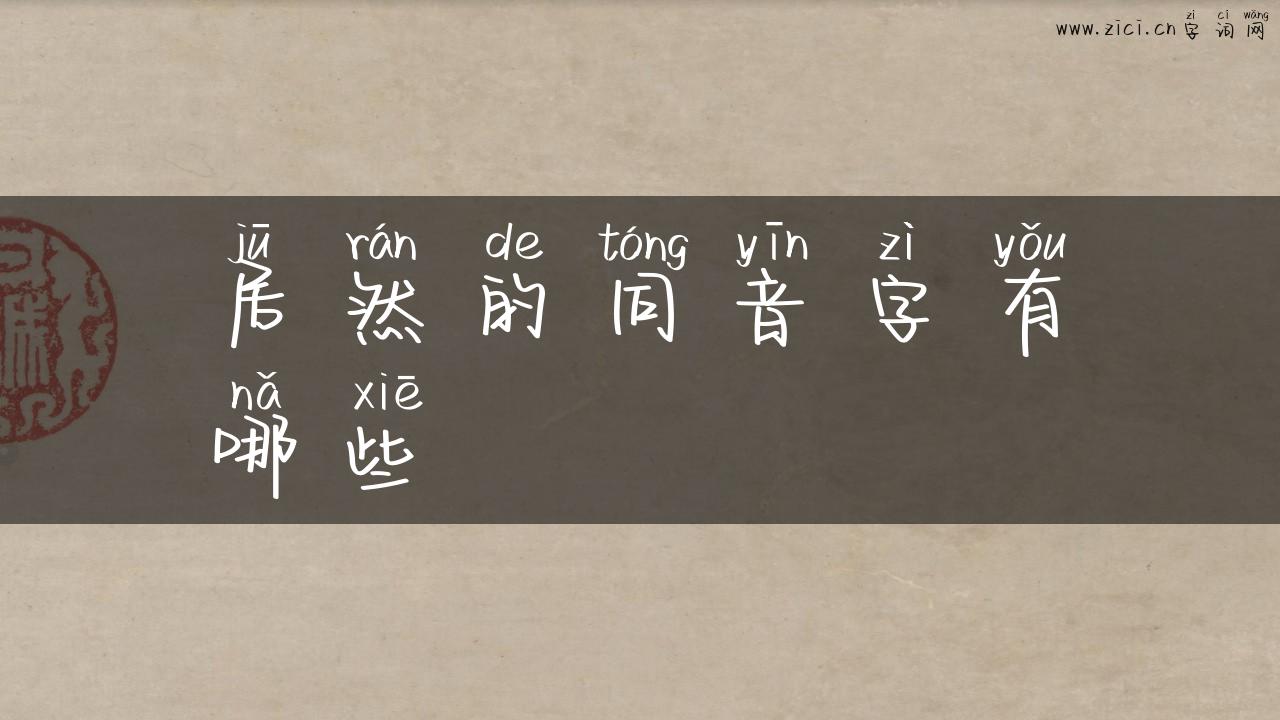 zì cí wǎng
www.zici.cn字词网
jū rán de tóng yīn zì yǒu
居然的同音字有
nǎ xiē
哪些